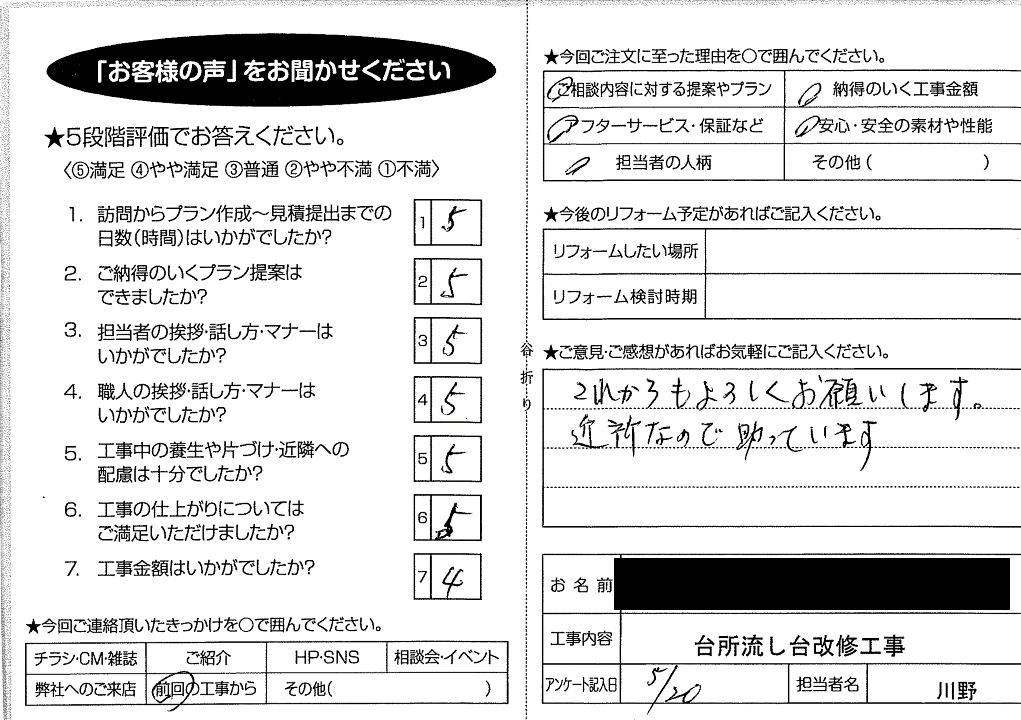 「お客様の声」をお聞かせください
★5段階評価でお答えください。
〈⑤満足 ④やや満足 ③普通 ②やや不満 ①不満〉
1. 訪問からプラン作成～見積提出までの
日数(時間)はいかがでしたか?
1 5
2. ご納得のいくプラン提案は
できましたか?
2 5
3. 担当者の挨拶・話し方・マナーは
いかがでしたか?
3 5
4. 職人の挨拶・話し方・マナーは
いかがでしたか?
4 5
5. 工事中の養生や片づけ・近隣への
配慮は十分でしたか?
5 5
6. 工事の仕上がりについては
ご満足いただけましたか?
6 5
7. 工事金額はいかがでしたか?
7 4
★今回ご連絡頂いたきっかけを○で囲んでください。
チラシ・CM・雑誌 ご紹介 HP・SNS 相談会・イベント
弊社へのご来店 前回の工事から その他( )
谷折り
★今回ご注文に至った理由を○で囲んでください。
ご相談内容に対する提案やプラン 納得のいく工事金額
アフターサービス・保証など 安心・安全の素材や性能
担当者の人柄 その他( )
★今後のリフォーム予定があればご記入ください。
リフォームしたい場所
リフォーム検討時期
★ご意見・ご感想があればお気軽にご記入ください。
これからもよろしくお願いします。
近所なので助っています
お名前
工事内容 台所流し台改修工事
アンケート記入日 5/20 担当者名 川野